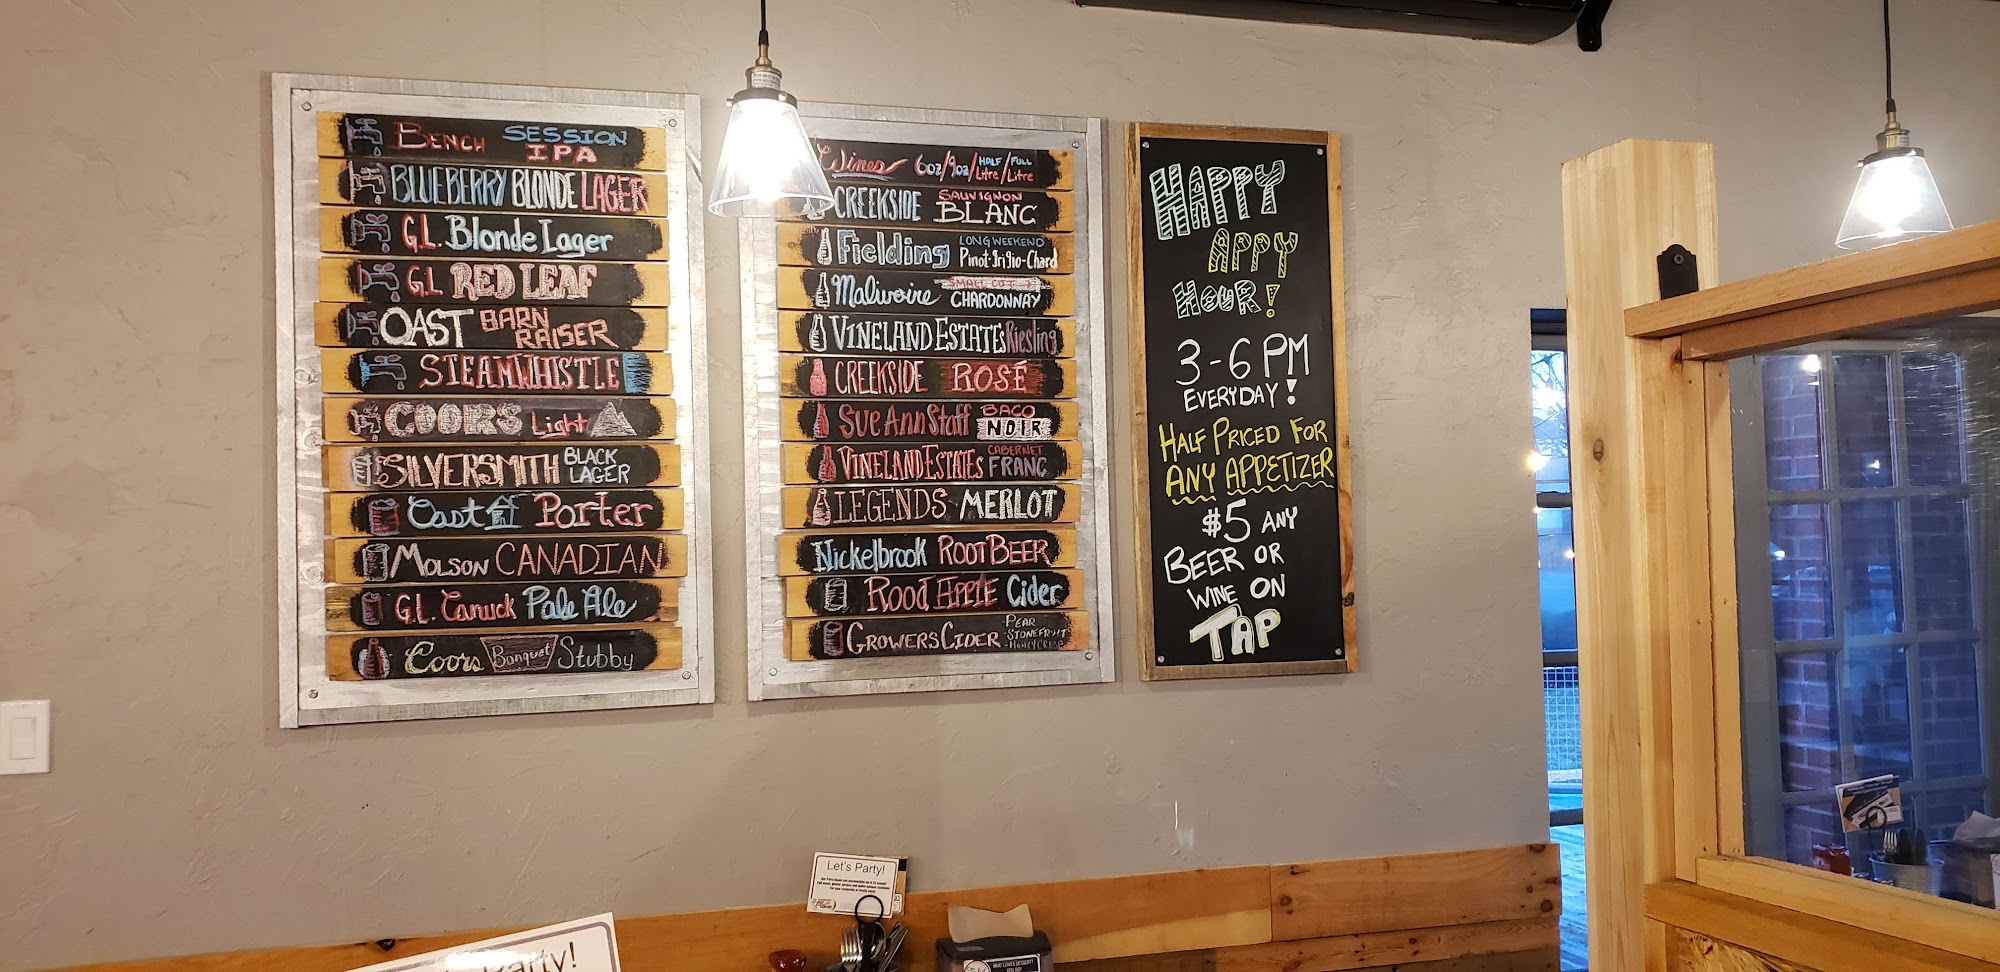 BENCH SESSION IPA
BLUEBERRY BLONDE LAGER
G.L. Blonde Lager
G.L RED LEAF
OAST BARN RAISER
STEAMWHISTLE
COORS Light
SILVERSMITH BLACK LAGER
Oast Porter
MOLSON CANADIAN
G.L. Canuck Pale Ale
Coors Banquet Stubby
Wines 6oz/9oz/HALF Litre/FULL Litre
CREEKSIDE SAUVIGNON BLANC
Fielding LONG WEEKEND Pinot-Grigio-Chard
Malivoire SMALL LOT CHARDONNAY
VINELAND ESTATES Riesling
CREEKSIDE ROSÉ
Sue Ann Staff BACO NOIR
VINELAND ESTATES CABERNET FRANC
LEGENDS MERLOT
Nickelbrook ROOT BEER
Rood APPLE Cider
GROWERS CIDER -PEAR -STONEFRUIT -HONEYCRISP
HAPPY
APPY
HOUR!
3-6 PM
EVERYDAY!
HALF PRICED FOR
ANY APPETIZER
$5 ANY
BEER OR
WINE ON
TAP
Let's Party!
Party!
WHO LOVES DESSERT?
YOU DO!